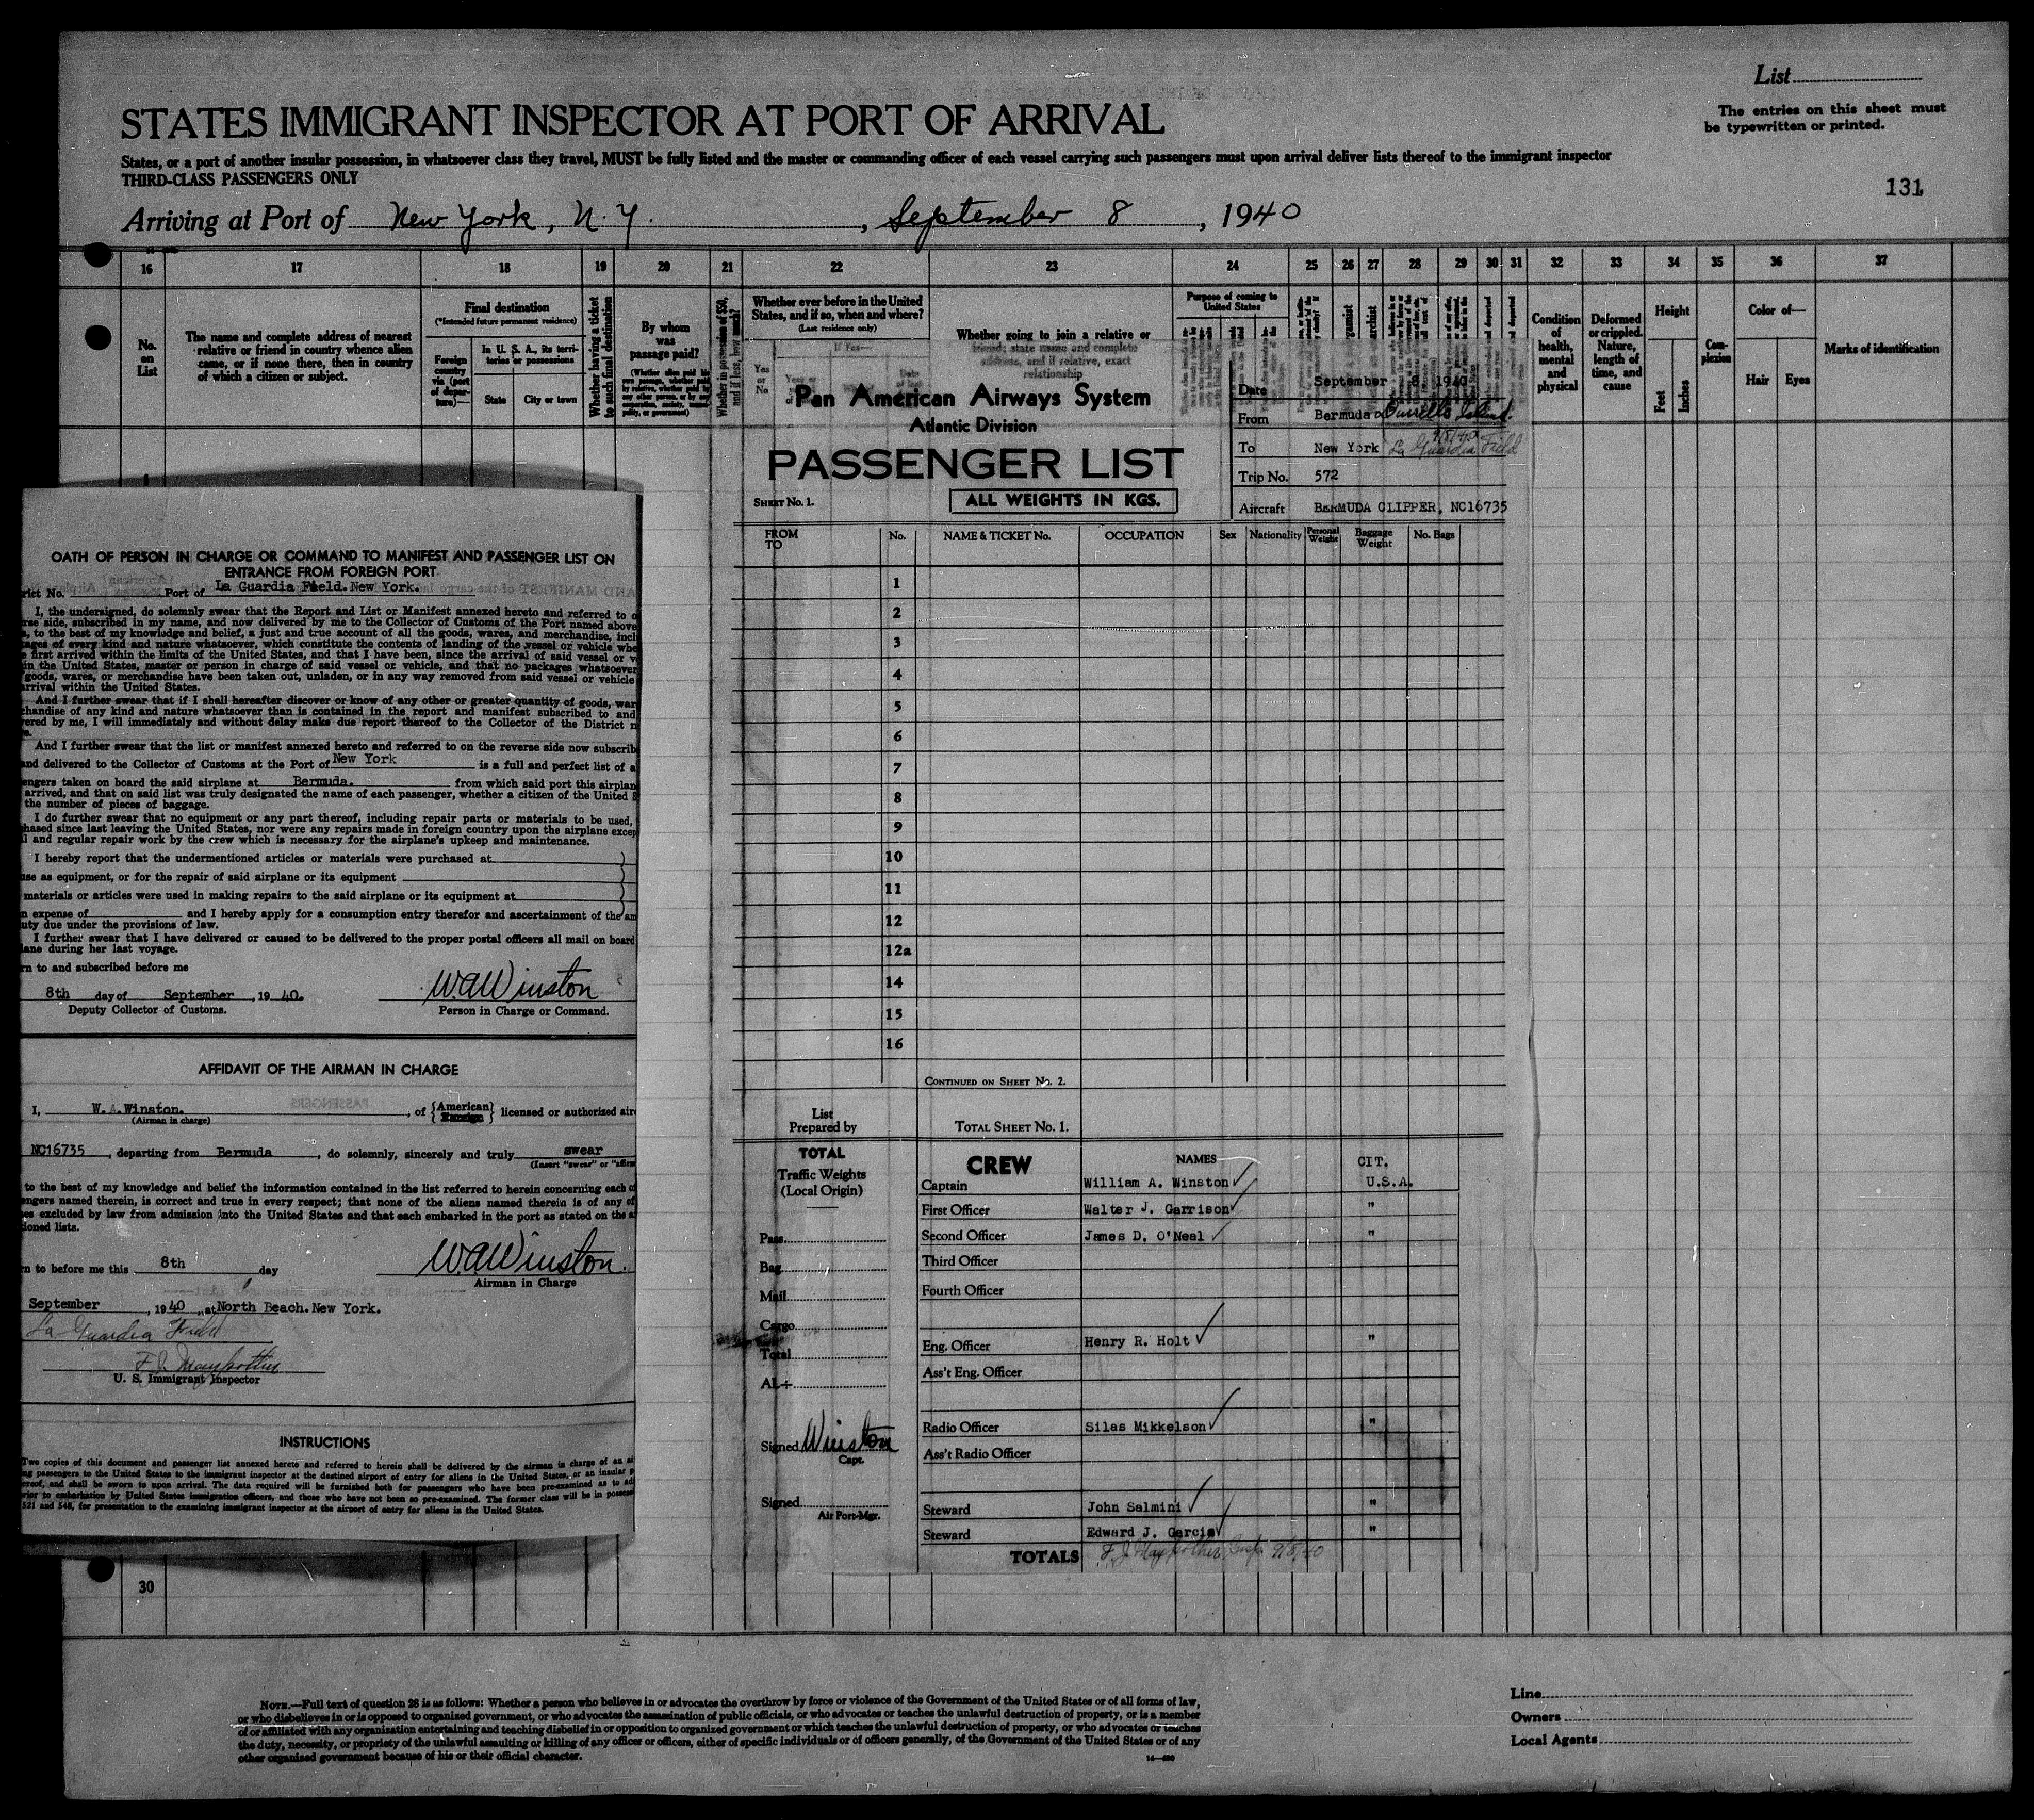 List
The entries on this sheet must
be typewritten or printed.
STATES IMMIGRANT INSPECTOR AT PORT OF ARRIVAL
States, or a port of another insular possession, in whatsoever class they travel, MUST be fully listed and the master or commanding officer of each vessel carrying such passengers must upon arrival deliver lists thereof to the immigrant inspector
THIRD-CLASS PASSENGERS ONLY
131
Arriving at Port of New York, N.Y., September 8, 1940
16 17 18 19 20 21 22 23 24 25 26 27 28 29 30 31 32 33 34 35 36 37
No. on List
The name and complete address of nearest relative or friend in country whence alien came, or if none there, then in country of which a citizen or subject.
Final destination
(*Intended future permanent residence)
Foreign country via (port of departure)—
In U. S. A., its territories or possessions
State
City or town
Whether having a ticket to such final destination
By whom was passage paid?
Whether in possession of $50, and if less, how much?
Whether ever before in the United States, and if so, when and where?
(Last residence only)
If Yes—
Yes or No
Whether going to join a relative or friend; state name and complete address, and if relative, exact relationship
Purpose of coming to United States
Condition of health, mental and physical
Deformed or crippled. Nature, length of time, and cause
Height
Feet
Inches
Complexion
Color of—
Hair
Eyes
Marks of identification
Pan American Airways System
Atlantic Division
PASSENGER LIST
SHEET No. 1.
ALL WEIGHTS IN KGS.
Date September 8 1940
From Bermuda Darrells Island.
To New York La Guardia Field 9/8/40
Trip No. 572
Aircraft BERMUDA CLIPPER, NC16735
FROM TO
No.
NAME & TICKET No.
OCCUPATION
Sex
Nationality
Personal Weight
Baggage Weight
No. Bags
1
2
3
4
5
6
7
8
9
10
11
12
12a
14
15
16
CONTINUED ON SHEET No. 2.
List Prepared by
TOTAL SHEET No. 1.
TOTAL
Traffic Weights
(Local Origin)
Pass.
Bag.
Mail
Cargo
Total
Signed Winston
Capt.
Signed
Air Port-Mgr.
CREW NAMES CIT.
Captain William A. Winston U.S.A.
First Officer Walter J. Garrison "
Second Officer James D. O'Neal "
Third Officer
Fourth Officer
Eng. Officer Henry R. Holt "
Ass't Eng. Officer
Radio Officer Silas Mikkelson "
Ass't Radio Officer
Steward John Salmini "
Steward Edward J. Garcia "
TOTALS 9/8/40
OATH OF PERSON IN CHARGE OR COMMAND TO MANIFEST AND PASSENGER LIST ON
ENTRANCE FROM FOREIGN PORT
rict No. Port of La Guardia Field. New York.
I, the undersigned, do solemnly swear that the Report and List or Manifest annexed hereto and referred to o
rse side, subscribed in my name, and now delivered by me to the Collector of Customs of the Port named above
s, to the best of my knowledge and belief, a just and true account of all the goods, wares, and merchandise, incl
ages of every kind and nature whatsoever, which constitute the contents of landing of the vessel or vehicle whe
e first arrived within the limits of the United States, and that I have been, since the arrival of said vessel or v
in the United States, master or person in charge of said vessel or vehicle, and that no packages whatsoever
goods, wares, or merchandise have been taken out, unladen, or in any way removed from said vessel or vehicle
arrival within the United States.
And I further swear that if I shall hereafter discover or know of any other or greater quantity of goods, war
chandise of any kind and nature whatsoever than is contained in the report and manifest subscribed to and
ered by me, I will immediately and without delay make due report thereof to the Collector of the District n
e.
And I further swear that the list or manifest annexed hereto and referred to on the reverse side now subscrib
and delivered to the Collector of Customs at the Port of New York is a full and perfect list of a
engers taken on board the said airplane at Bermuda. from which said port this airplan
arrived, and that on said list was truly designated the name of each passenger, whether a citizen of the United S
the number of pieces of baggage.
I do further swear that no equipment or any part thereof, including repair parts or materials to be used,
hased since last leaving the United States, nor were any repairs made in foreign country upon the airplane excep
l and regular repair work by the crew which is necessary for the airplane's upkeep and maintenance.
I hereby report that the undermentioned articles or materials were purchased at
use as equipment, or for the repair of said airplane or its equipment
materials or articles were used in making repairs to the said airplane or its equipment at
n expense of and I hereby apply for a consumption entry therefor and ascertainment of the am
uty due under the provisions of law.
I further swear that I have delivered or caused to be delivered to the proper postal officers all mail on board
lane during her last voyage.
rn to and subscribed before me
8th day of September, 1940. W.A.Winston
Deputy Collector of Customs. Person in Charge or Command.
AFFIDAVIT OF THE AIRMAN IN CHARGE
I, W.A.Winston., of {American Foreign} licensed or authorized air
(Airman in charge)
NC16735, departing from Bermuda, do solemnly, sincerely and truly swear
(Insert "swear" or "affirm
to the best of my knowledge and belief the information contained in the list referred to herein concerning each o
engers named therein, is correct and true in every respect; that none of the aliens named therein is of any of
es excluded by law from admission into the United States and that each embarked in the port as stated on the a
ioned lists.
W.A.Winston.
n to before me this 8th day Airman in Charge
September, 1940, at North Beach. New York.
La Guardia Field
U. S. Immigrant Inspector
INSTRUCTIONS
Two copies of this document and passenger list annexed hereto and referred to herein shall be delivered by the airman in charge of an ai
ng passengers to the United States to the immigrant inspector at the destined airport of entry for aliens in the United States, or an insular p
ereof, and shall be sworn to upon arrival. The data required will be furnished both for passengers who have been pre-examined as to ad
rior to embarkation by United States immigration officers, and those who have not been so pre-examined. The former class will be in posses
521 and 548, for presentation to the examining immigrant inspector at the airport of entry for aliens in the United States.
30
NOTE.—Full text of question 28 is as follows: Whether a person who believes in or advocates the overthrow by force or violence of the Government of the United States or of all forms of law,
or who disbelieves in or is opposed to organized government, or who advocates the assassination of public officials, or who advocates or teaches the unlawful destruction of property, or is a member
of or affiliated with any organization entertaining and teaching disbelief in or opposition to organized government or which teaches the unlawful destruction of property, or who advocates or teaches
the duty, necessity, or propriety of the unlawful assaulting or killing of any officer or officers, either of specific individuals or of officers generally, of the Government of the United States or of any
other organized government because of his or their official character.
Line
Owners
Local Agents